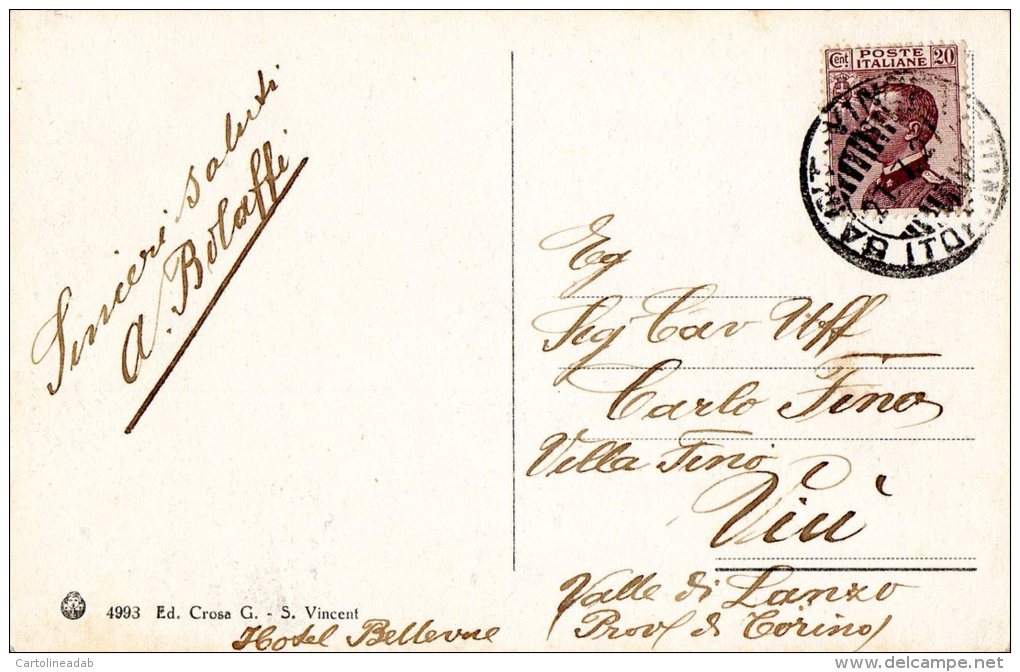 Sinceri saluti
A. Bolaffi
4993 Ed. Crosa G. - S. Vincent
Hotel Bellevue
Cent. POSTE ITALIANE 20
Eg
Sig Cav Uff
Carlo Fino
Villa Fino
Viù
Valle di Lanzo
(Prov di Torino)
© Cartolineadab
delcampe.net